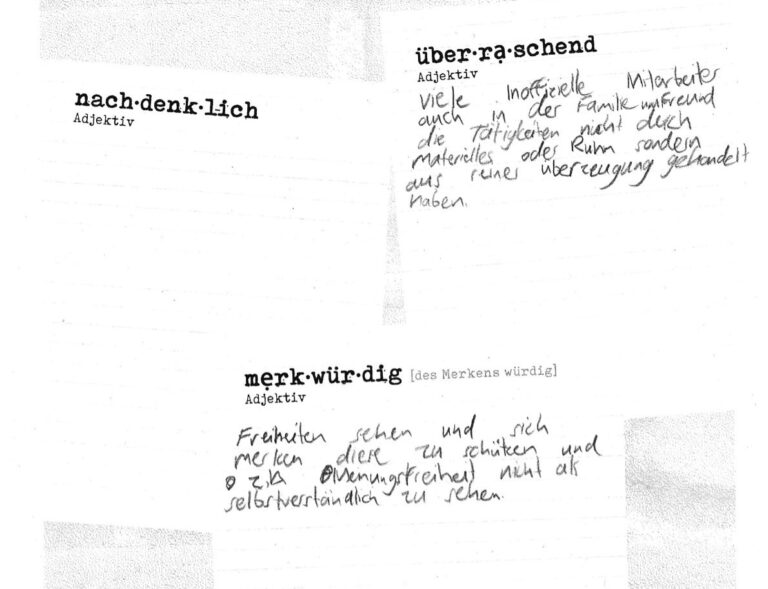 nach·denk·lich
Adjektiv
über·rạ·schend
Adjektiv
Viele Inoffizielle Mitarbeiter
auch in der Familie und Freund
die Tätigkeiten nicht durch
Materielles oder Ruhm sondern
aus reiner überzeugung gehandelt
haben.
mẹrk·wür·dig [des Merkens würdig]
Adjektiv
Freiheiten sehen und sich
merken diese zu schützen und
z.B. Meinungsfreiheit nicht als
selbstverständlich zu sehen.